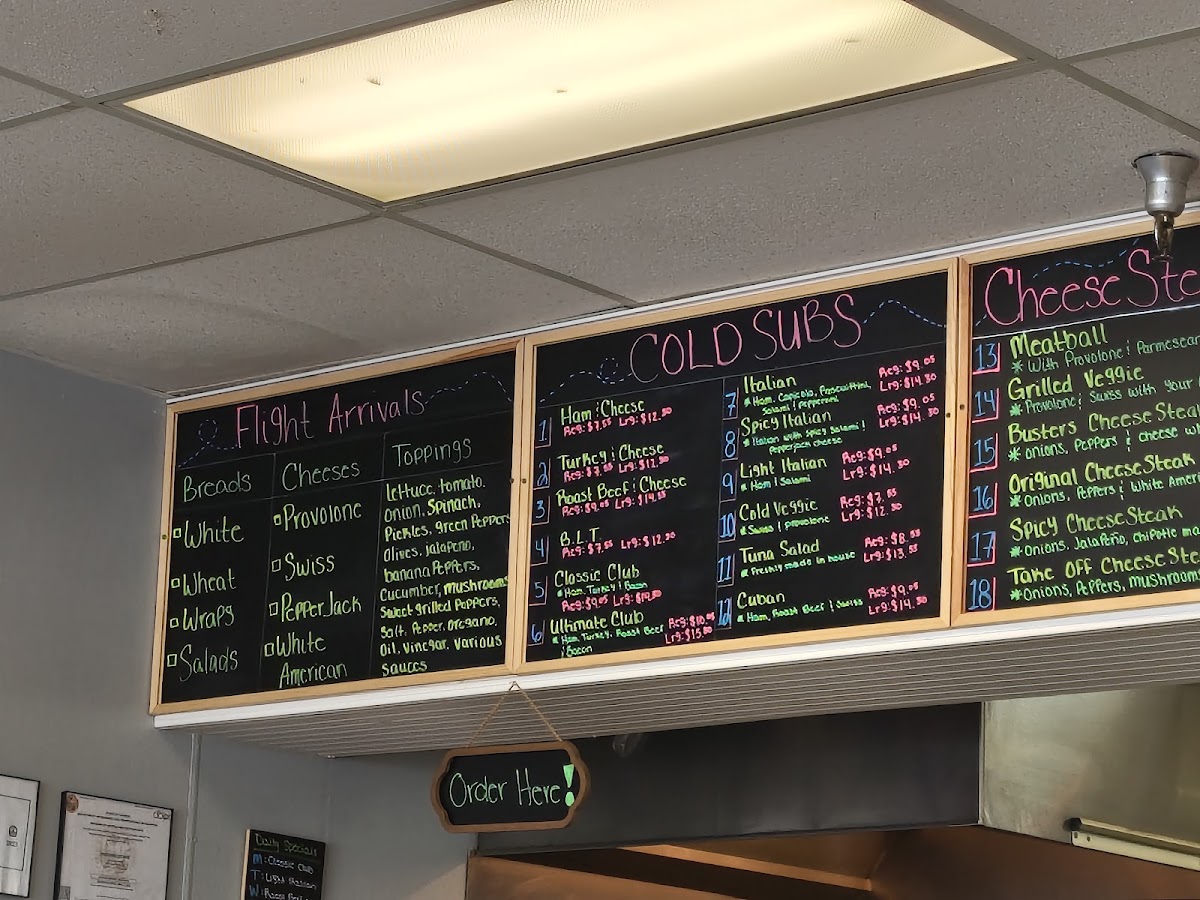 Flight Arrivals
Breads
White
Wheat
Wraps
Salads
Cheeses
Provolone
Swiss
PepperJack
White
American
Toppings
lettuce, tomato,
onion, Spinach,
Pickles, green Peppers
Olives, jalapeno,
banana Peppers,
Cucumber, mushrooms
Sweet grilled Peppers,
Salt, Pepper, oregano,
Oil, vinegar, various
sauces
COLD SUBS
1 Ham & Cheese
Reg: $7.55 Lrg: $12.30
2 Turkey & Cheese
Reg: $7.55 Lrg: $12.30
3 Roast Beef & Cheese
Reg: $9.05 Lrg: $14.55
4 B.L.T.
Reg: $7.55 Lrg: $12.30
5 Classic Club
* Ham, Turkey & Bacon
Reg: $9.05 Lrg:
6 Ultimate Club
* Ham, Turkey, Roast Beef
& Bacon
Reg: $10.05
Lrg: $15.50
7 Italian
* Ham, Capicola, Proscuittini,
Salami & Pepperoni
Reg: $9.05
Lrg: $14.30
8 Spicy Italian
* Italian with spicy salami &
pepperjack cheese
Reg: $9.05
Lrg: $14.30
9 Light Italian
* Ham & Salami
Reg: $9.05
Lrg: $14.30
10 Cold Veggie
* Swiss & provolone
Reg: $7.55
Lrg: $12.30
11 Tuna Salad
* Freshly made in house
Reg: $8.55
Lrg: $13.55
12 Cuban
* Ham, Roast Beef & Swiss
Reg: $9.05
Lrg: $14.30
Cheese Ste
13 Meatball
* With Provolone & Parmesean
14 Grilled Veggie
* Provolone & Swiss with your
15 Busters Cheese Steak
* Onions, Peppers & cheese wh
16 Original Cheese Steak
* Onions, Peppers & White Ameri
17 Spicy Cheese Steak
* Onions, Jalapeño, chipotle ma
18 Take Off Cheese Ste
* Onions, Peppers, mushrooms
Order Here!
Daily Specials
M: Classic Club
T: Light Italian
W: Roast Beef